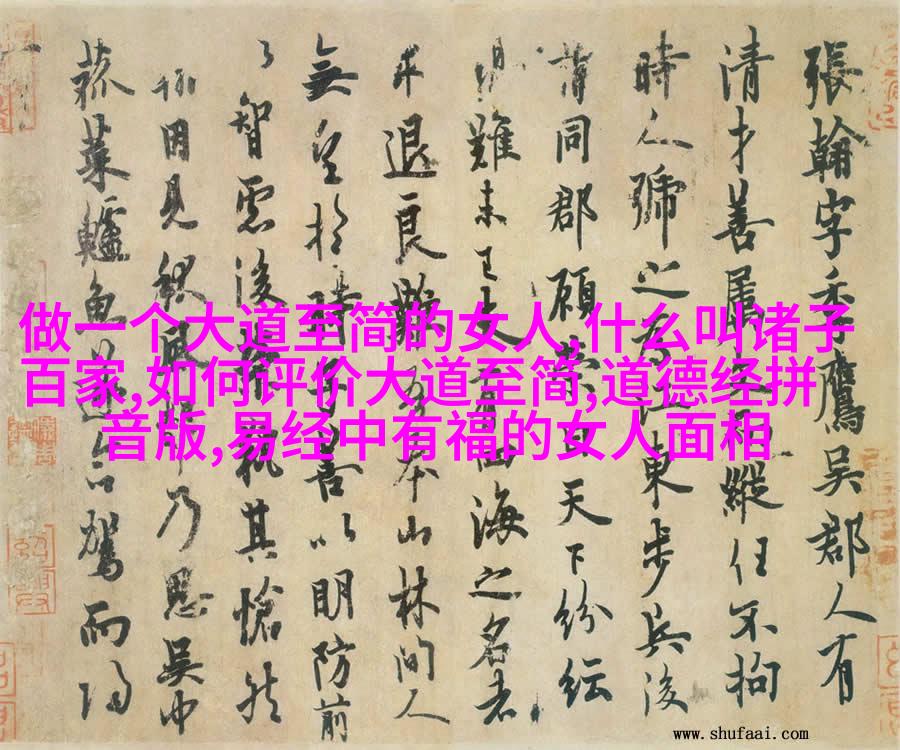 張翰字季鷹吳郡人有
清才善属文而縱任不拘
時人號之為江東步兵後
謂同郡顧榮曰天下紛紜
禍難未已夫有四海之名者
求退良難吾本山林間人
無望於時子善以明防前
以智慮後榮執其愴然
翰因見秋風起乃思吳中
菰菜鱸魚遂命駕而歸
做一个大道至简的女人,什么叫诸子
百家,如何评价大道至简,道德经拼
音版,易经中有福的女人面相
www.shufaai.com